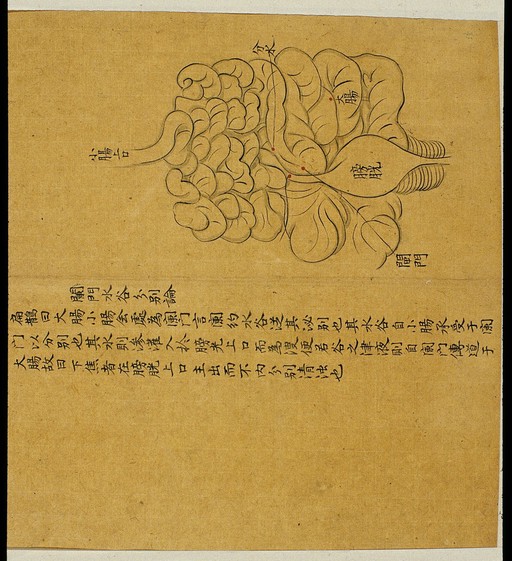 分水
大腸
小腸上口
膀胱
闌門
闌門水谷分別論
扁鵲曰大腸小腸会處為闌门言闌約水谷從其泌别也其水谷自小腸承受于闌
门以分别也其水則滲灌入於膀光上口而爲溲便若谷之津液則自闌门傳道于
大腸故曰下焦者在膀胱上口主出而不内分别清浊也